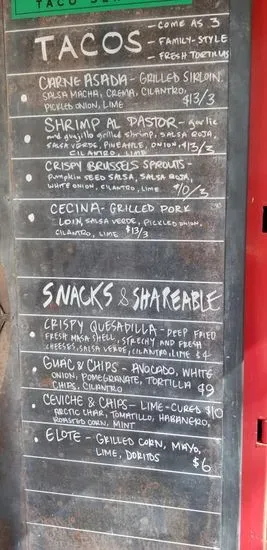 TACOS
- COME AS 3
- FAMILY-STYLE
- FRESH TORTILLAS
CARNE ASADA - GRILLED SIRLOIN,
SALSA MACHA, CREMA, CILANTRO,
PICKLED ONION, LIME $13/3
SHRIMP AL PASTOR - garlic
and guajillo grilled shrimp, SALSA ROJA,
SALSA VERDE, PINEAPPLE, ONION, $13/3
CILANTRO, LIME
CRISPY BRUSSELS SPROUTS -
Pumpkin SEED SALSA, SALSA ROJA,
WHITE ONION, CILANTRO, LIME $10/3
CECINA - GRILLED PORK
LOIN, SALSA VERDE, PICKLED ONION,
CILANTRO, LIME $13/3
SNACKS & SHAREABLE
CRISPY QUESADILLA - DEEP FRIED
FRESH MASA SHELL, STRETCHY AND FRESH
CHEESES, SALSA VERDE, CILANTRO, LIME $4
GUAC & CHIPS - AVOCADO, WHITE
ONION, POMEGRANATE, TORTILLA
CHIPS, CILANTRO $9
CEVICHE & CHIPS - LIME-CURED $10
ARCTIC CHAR, TOMATILLO, HABANERO,
ROASTED CORN, MINT
ELOTE - GRILLED CORN, MAYO,
LIME, DORITOS $6